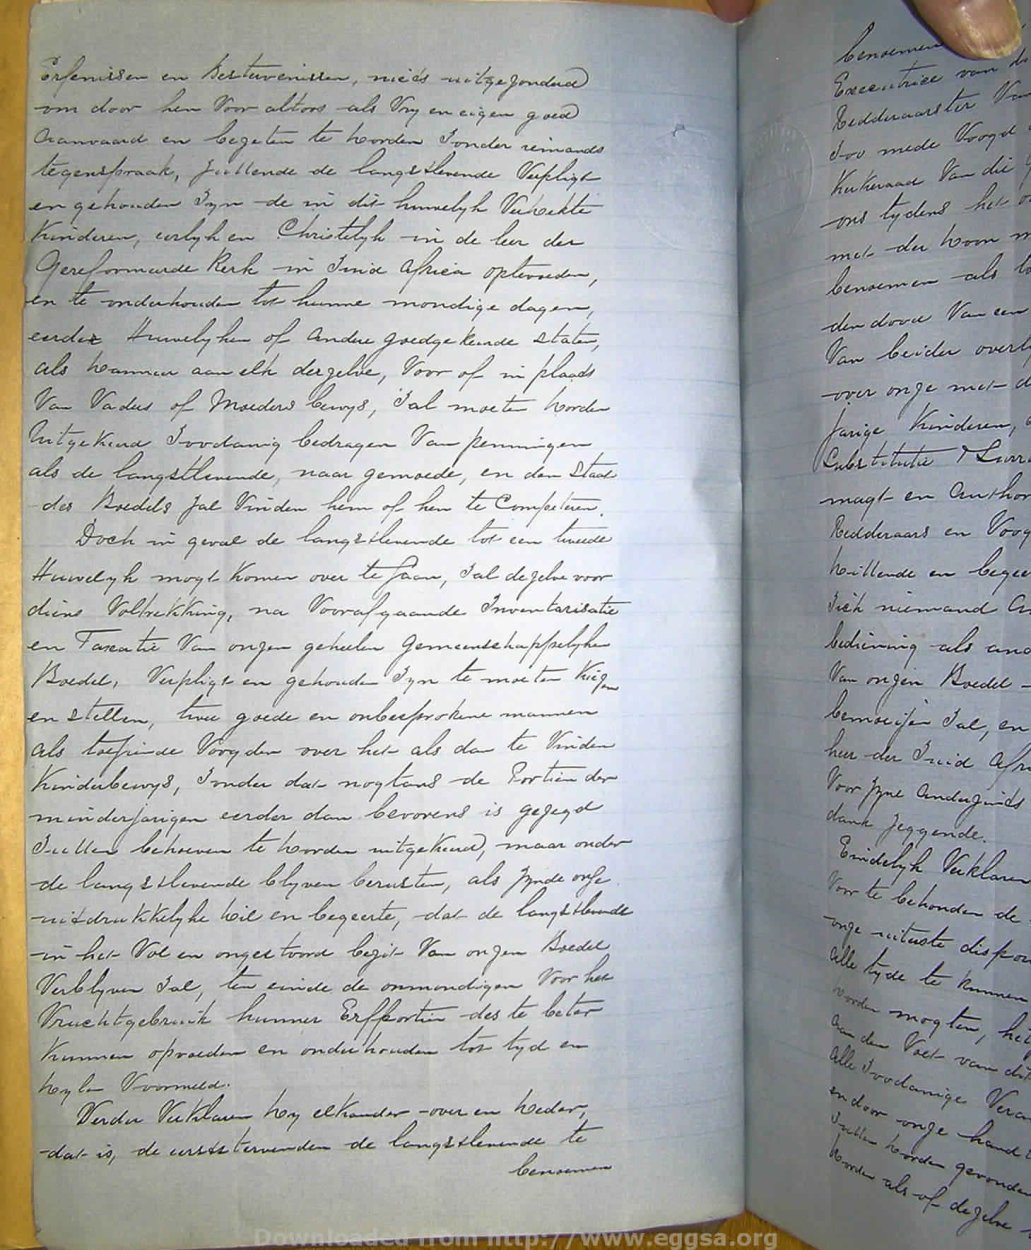 Erfenissen en Bestervenissen, niets uitgezonderd
om door hen Voor altoos als Vry en eigen goed
Aanvaard en bezeten te Worden Zonder iemands
tegenspraak, Zullende de langstlevende Verpligt
en gehouden Zyn de in dit huwelyk Verwekte
Kinderen, eerlyk en Christelyk in de leer der
Gereformeerde Kerk in Zuid Africa optevoeden,
en te onderhouden tot hunne mondige dagen,
eerder Huwelyken of Andere goedgekeurde staten,
als Wanneer aan elk derzelve, Voor of in plaats
Van Vaders of Moeders bewys, Zal moeten Worden
Uitgekeerd Zoodanig bedragen Van penningen
als de langstlevende, naar gemoede, en den Staat
des Boedels Zal Vinden hem of hen te Competeren.
Doch in geval de langstlevende tot een tweede
Huwelyk mogt Komen over te gaan, Zal dezelve voor
diens Voltrekking, na Voorafgaande Inventarisatie
en Taxatie Van onzen geheelen gemeenschappelyken
Boedel, Verpligt en gehouden Zyn te moeten Kiezen
en stellen, twee goede en onbesprokene mannen
als toeziende Voogden over het als dan te Vinden
Kinderbewys, Zonder dat nogtans de Portien der
minderjarigen eerder dan bevorens is gezegd
Zullen behoeven te Worden uitgekeerd, maar onder
de langstlevende blyven berusten, als Zynde onze
uitdrukkelyke Wil en begeerte, dat de langstlevende
in het Vol en ongestoord bezit Van onzen Boedel
Verblyven Zal, ten einde de onmondigen Voor het
Vruchtgebruik hunner Erfportien des te beter
Kunnen opvoeden en onderhouden tot tyd en
Wylen Voormeld.
Verder Verklaren Wy elkander over en Weder,
dat is, de eerststervenden de langstlevende te
benoemen
benoemen
Executrice van
Redderaarster Van
Zoo mede Voogd
Kerkeraad Van die
ons tydens het
met der Woon
benoemen als
den dood Van een
Van beider
over onze met
jarige Kinderen,
Substitutie &
magt en
Redderaars en
Willende en
Zich niemand
bediening als
Van onzen Boedel
bemoeijen Zal, en
heer der Zuid
Voor Zyne
dank Zeggende.
Eindelyk Verklaren
Voor te behouden de
onze uiterste
Alle tyde te Kunnen
worden mogten,
Aan den Voet van
Alle Zoodanige
en door onze
Zullen Worden
Worden als of dezelve
Downloaded from http://www.eggsa.org